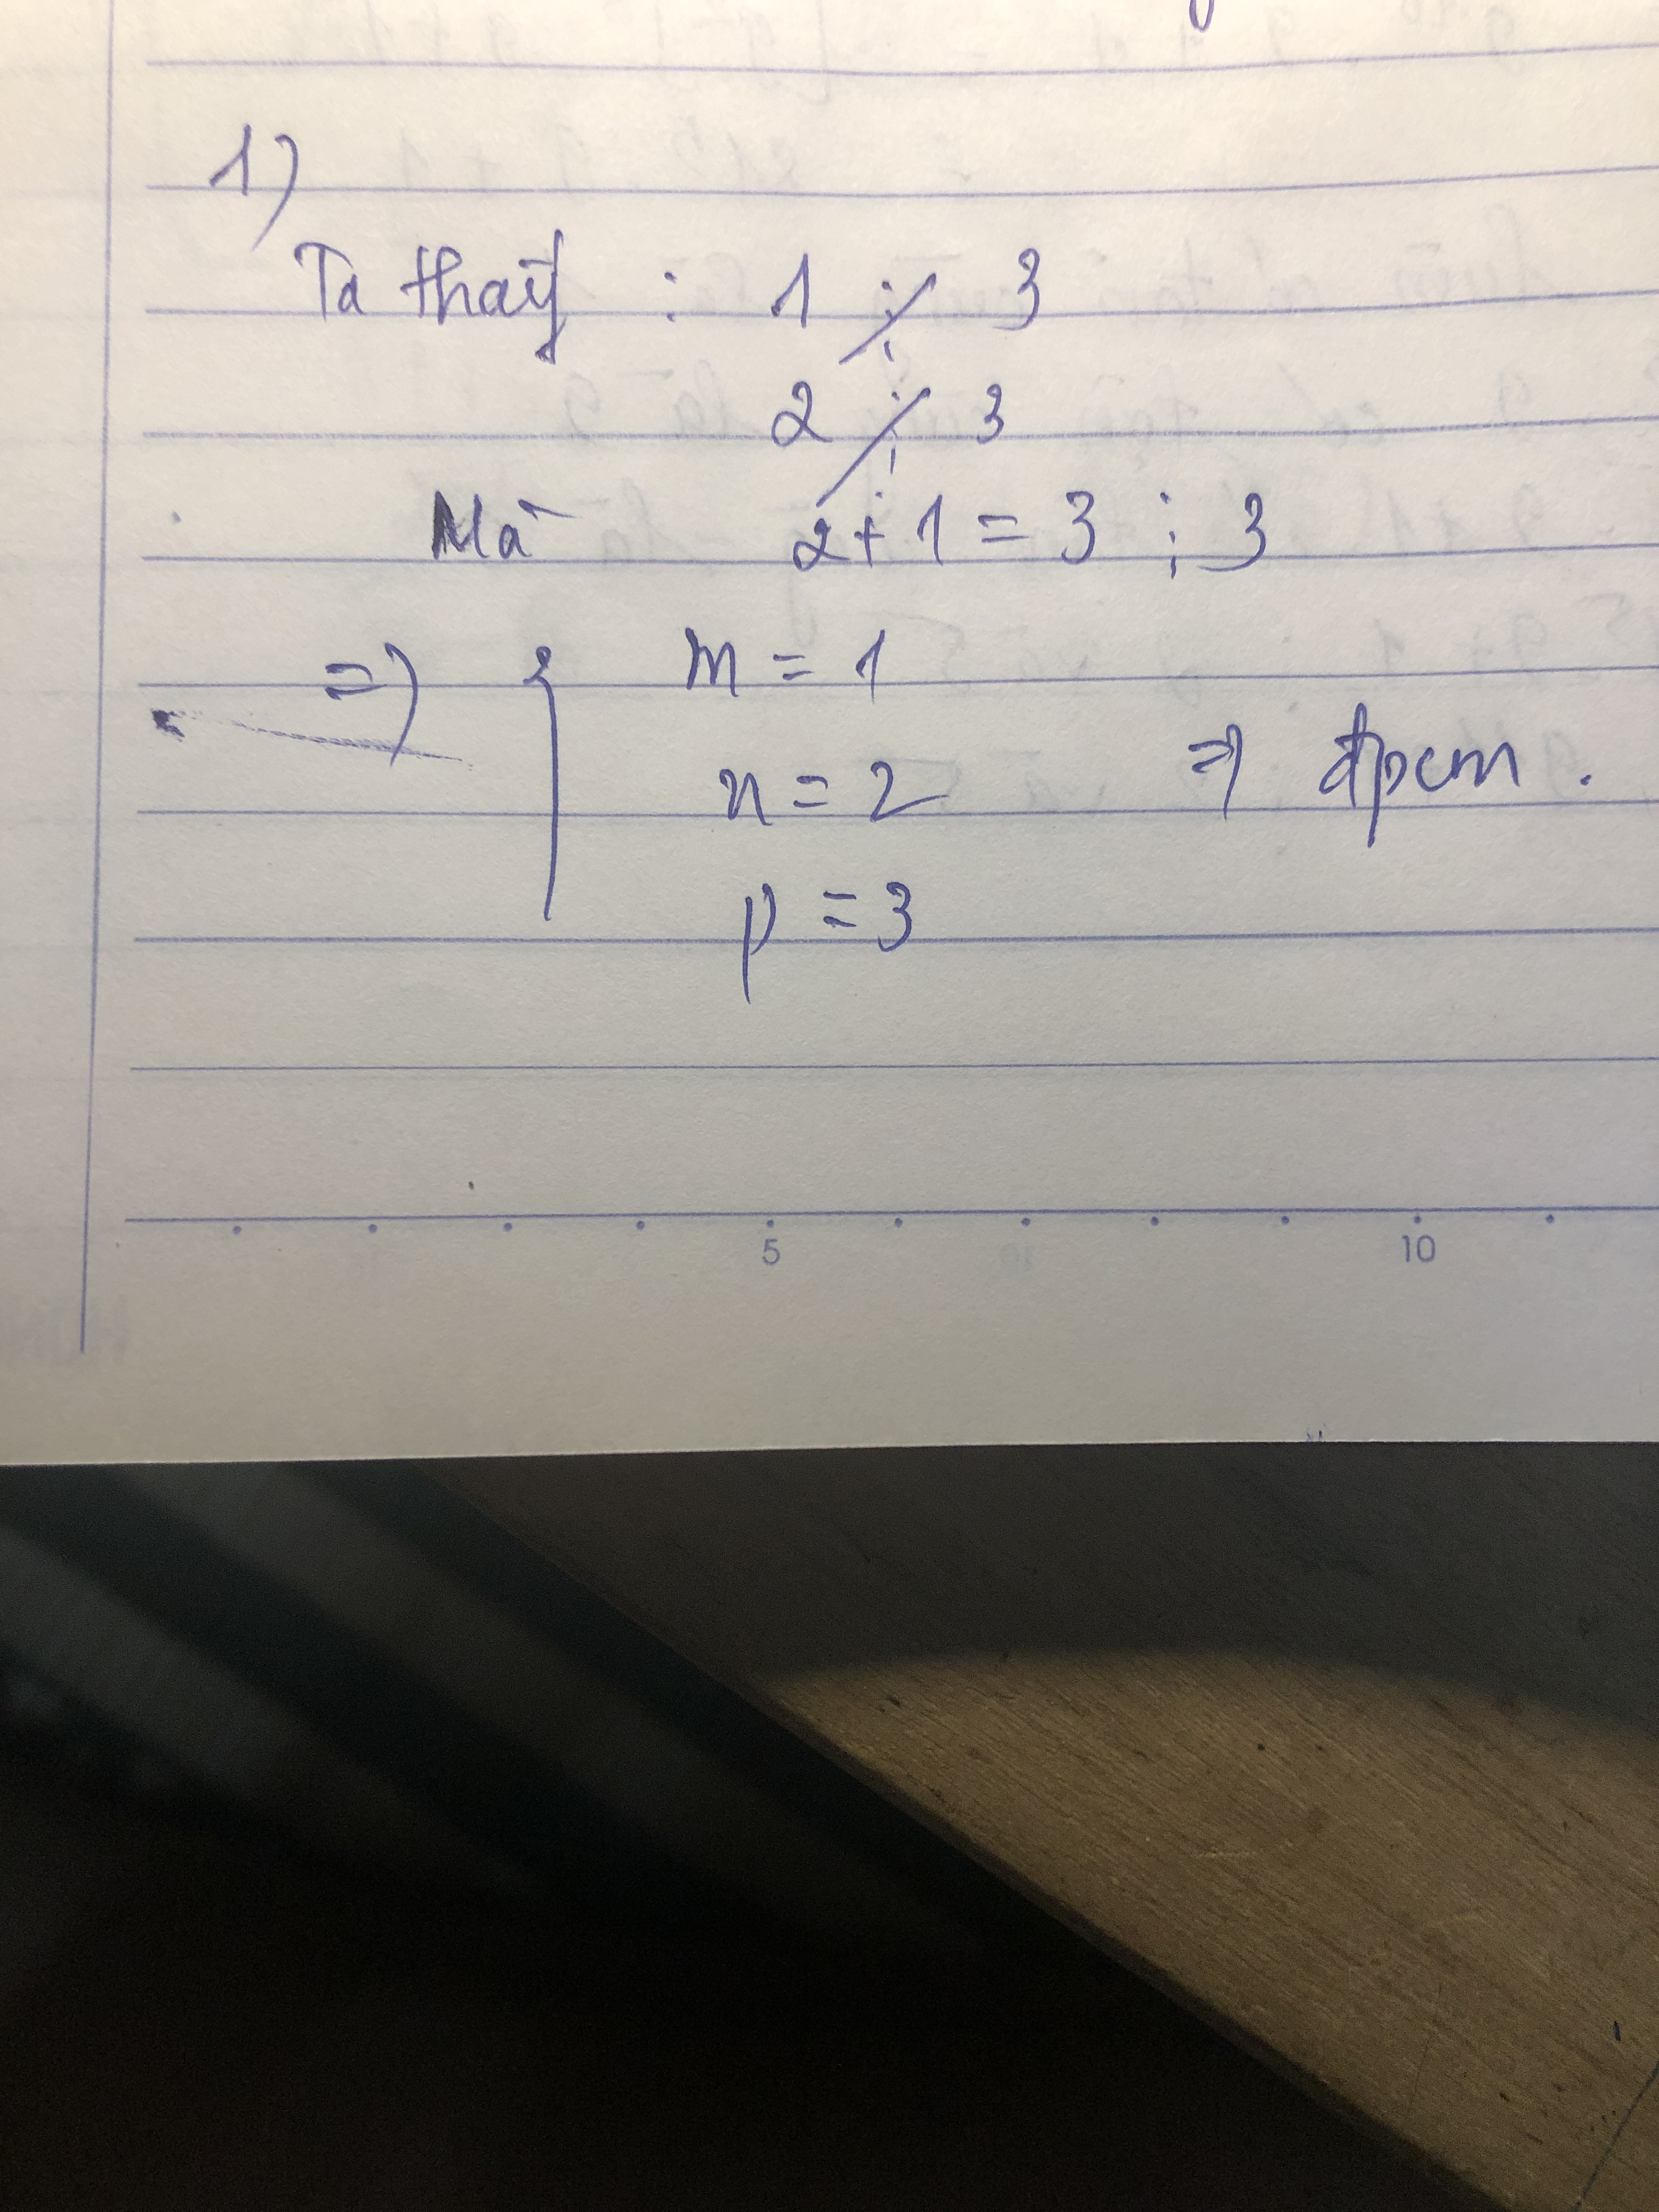 1)
Ta thấy : 1 ⋮̸ 3
2 ⋮̸ 3
Mà 2 + 1 = 3 ⋮ 3
=> { m = 1
n = 2 => đpcm .
p = 3
5 10